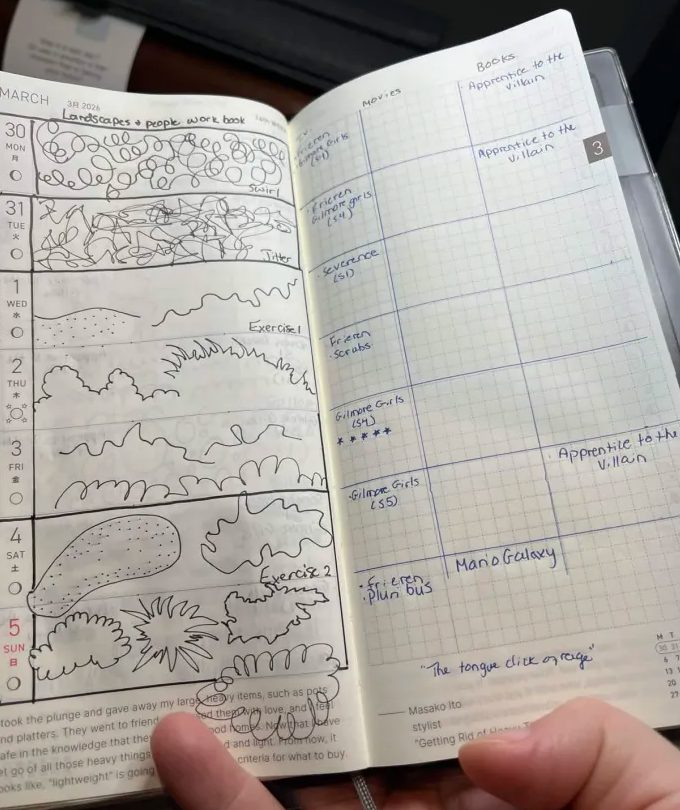 MARCH
3月 2026
Landscapes + people work book
30
MON
月
Swirl
31
TUE
火
Jitter
1
WED
水
Exercise 1
2
THU
木
3
FRI
金
4
SAT
土
Exercise 2
5
SUN
日
took the plunge and gave away my large, heavy items, such as pots
nd platters. They went to friend
ed them with love, and I feel
afe in the knowledge that the
ood homes. Now that I have
et go of all those heavy things
d and light. From now, it
ooks like, "lightweight" is going
criteria for what to buy.
Movies
Books
Frieren
Gilmore Girls
(S4)
Apprentice to the
Villain
Frieren
Gilmore girls
(S4)
Apprentice to the
Villain
3
Severence
(S1)
Frieren
Scrubs
Gilmore Girls
(S4)
★★★★★
Gilmore Girls
(S5)
Apprentice to the
Villain
Frieren
Pluribus
Mario Galaxy
"The tongue click of rage"
Masako Ito
stylist
"Getting Rid of
M T
30 31
6 7
13
20
27